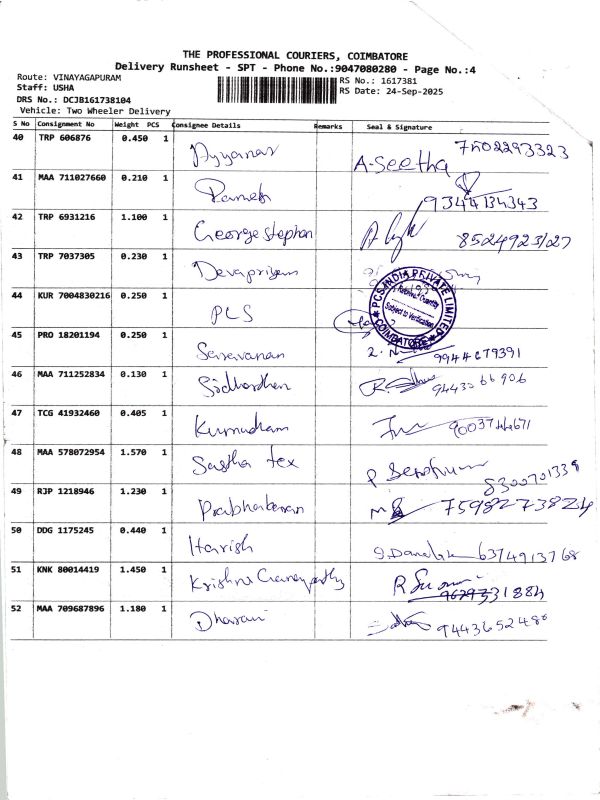 THE PROFESSIONAL COURIERS, COIMBATORE
Delivery Runsheet - SPT - Phone No.:9047080280 - Page No.:4
Route: VINAYAGAPURAM
Staff: USHA
DRS No.: DCJB161738104
Vehicle: Two Wheeler Delivery
RS No.: 1617381
RS Date: 24-Sep-2025
S No Consignment No Weight PCS Consignee Details Remarks Seal & Signature
40 TRP 606876 0.450 1 Ayyanar A-Seetha 7502293323
41 MAA 711027660 0.210 1 Ramesh 9344134343
42 TRP 6931216 1.100 1 George stephan 8524923127
43 TRP 7037305 0.230 1 Devapriyam
44 KUR 7004830216 0.250 1 PCS
PCS INDIA PRIVATE LIMITED
Subject to Verification
COIMBATORE
45 PRO 18201194 0.250 1 Saravanan 9944679391
46 MAA 711252834 0.130 1 Sidharthen 9443066906
47 TCG 41932460 0.405 1 Kumudham 9003744671
48 MAA 578072954 1.570 1 Sastha tex 8300701339
49 RJP 1218946 1.230 1 Prabhakaran 7598273824
50 DDG 1175245 0.440 1 Harish 6374913768
51 KNK 80014419 1.450 1 Krishna
52 MAA 709687896 1.180 1 Dharani 9443652480